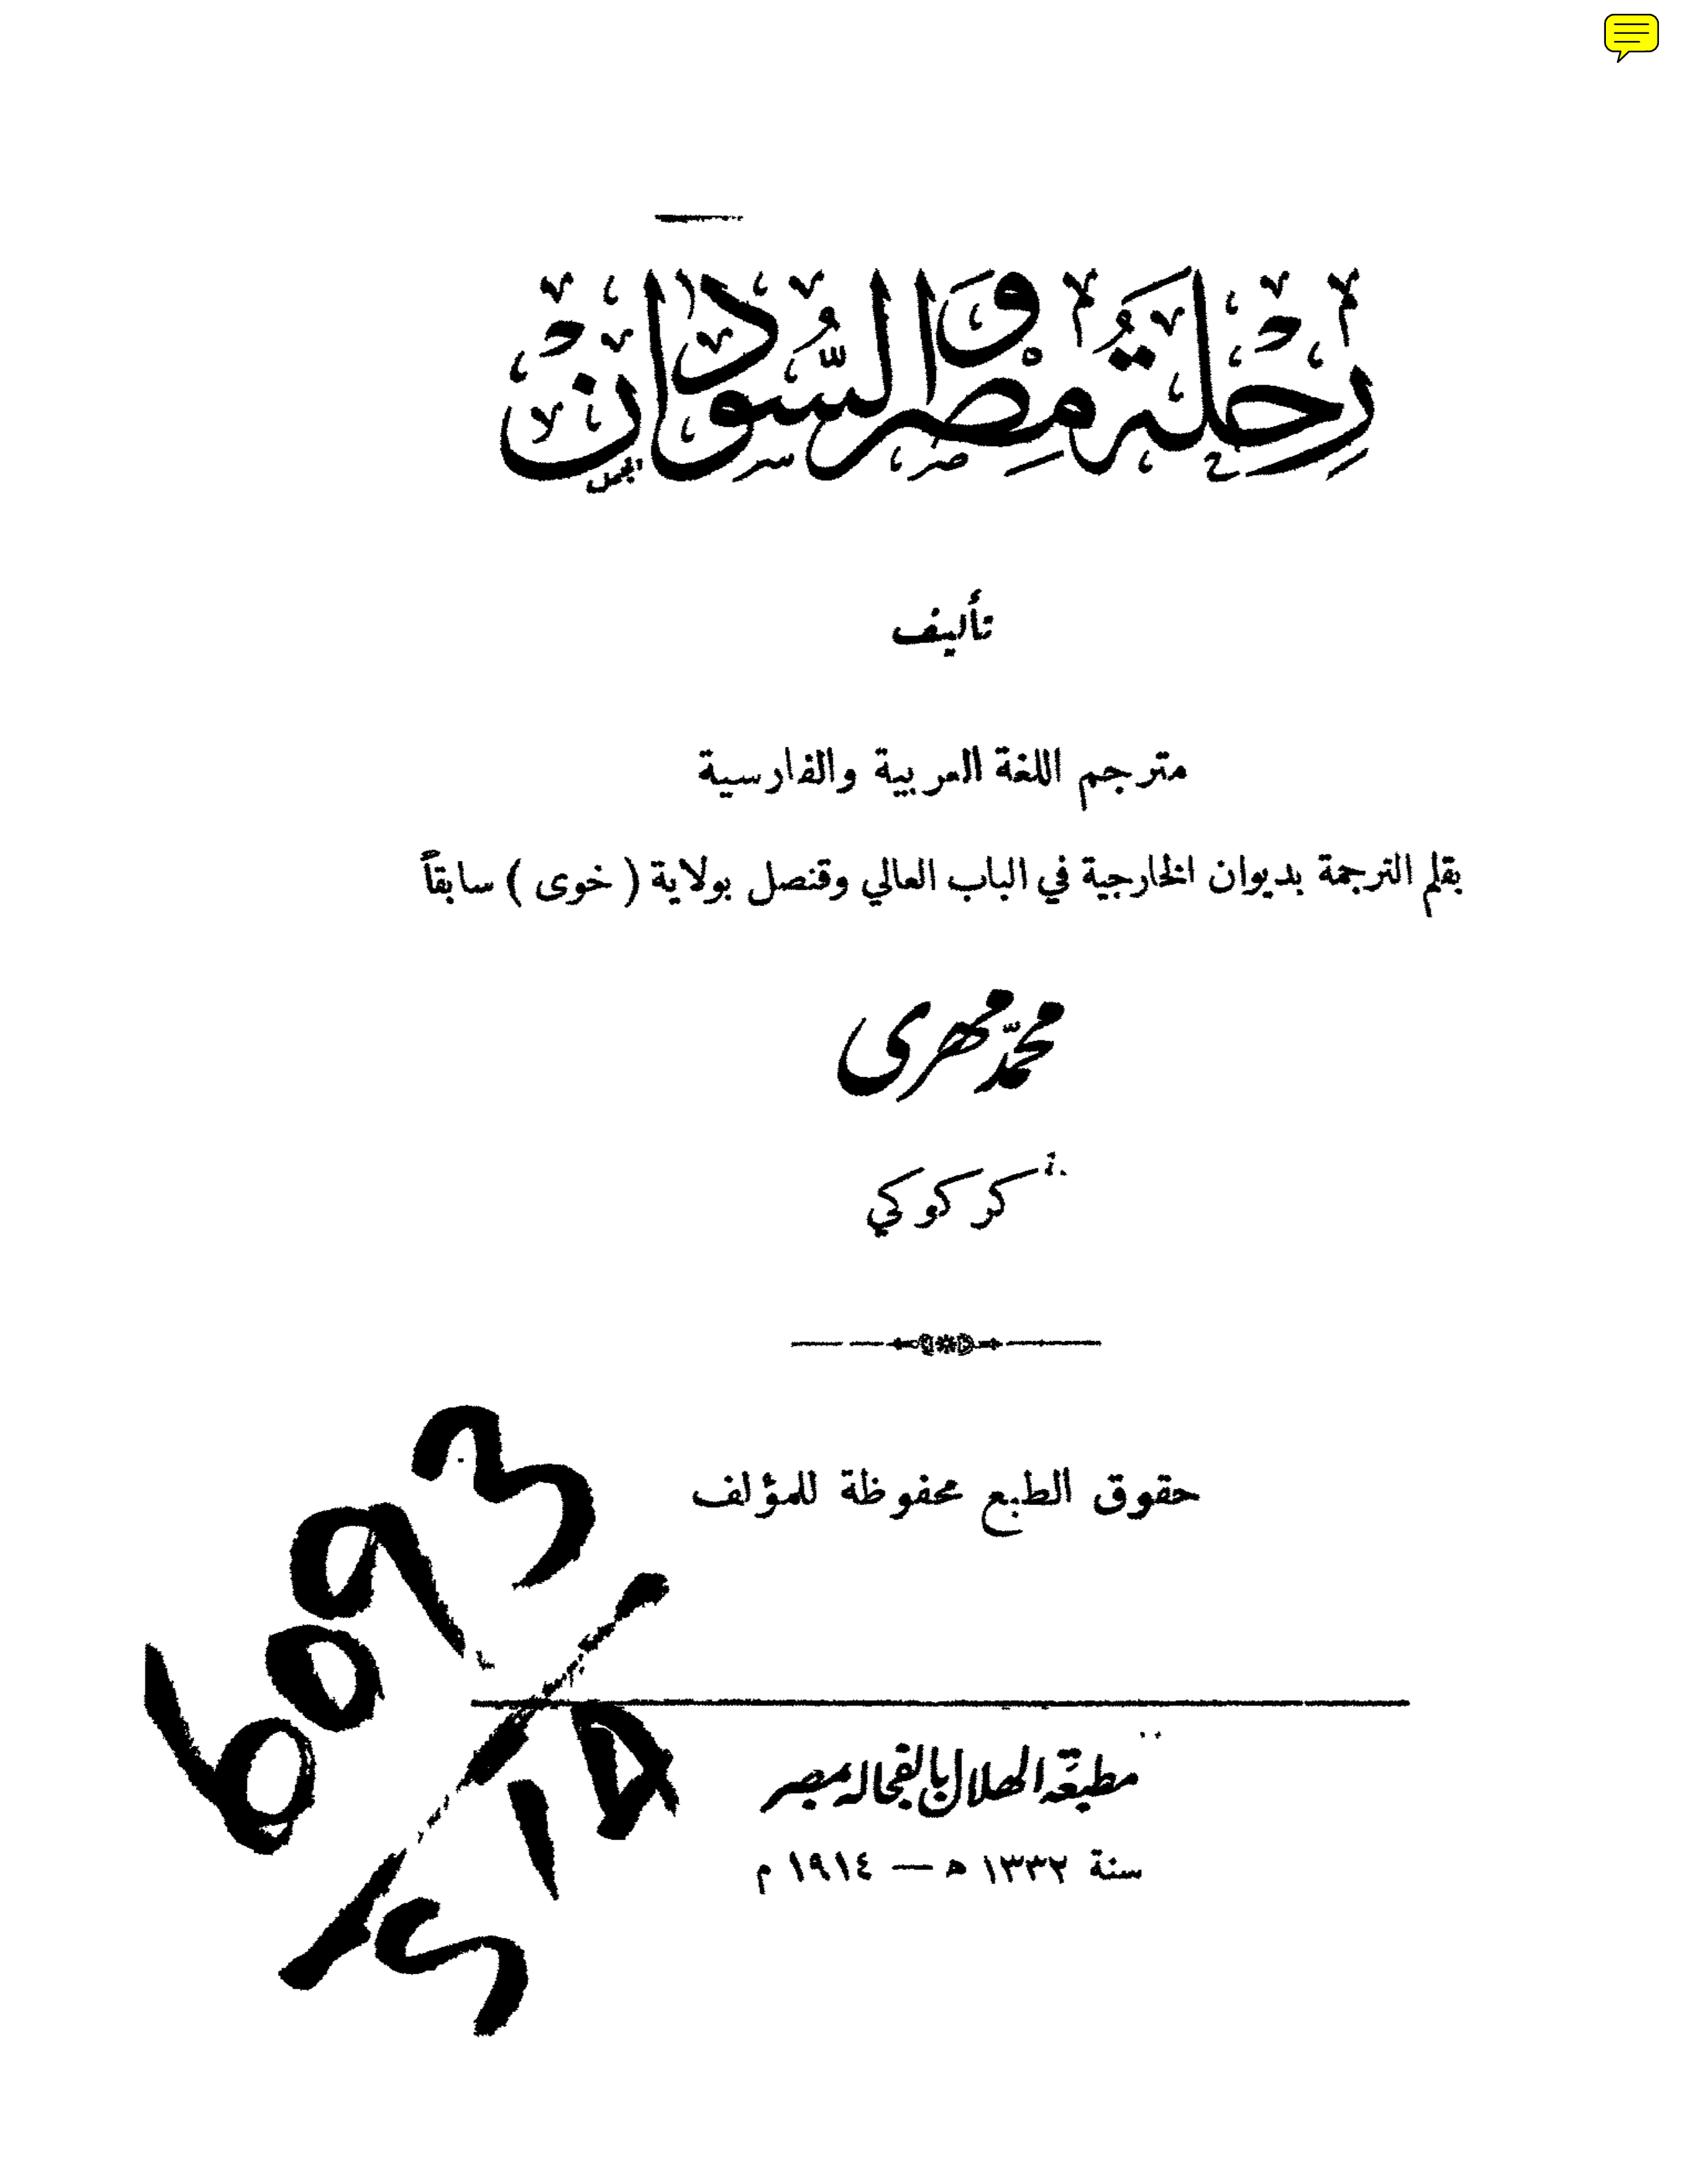 رحلة مصر والسودان
تأليف
مترجم اللغة العربية والفارسية
بقلم الترجمة بديوان الخارجية في الباب العالي وقنصل بولاية ( خوى ) سابقاً
محمّد مهرى
كركوكي
حقوق الطبع محفوظة للمؤلف
6093
مطبعة الهلال بالفجالة بمصر
سنة ١٣٣٢ ه — ١٩١٤ م